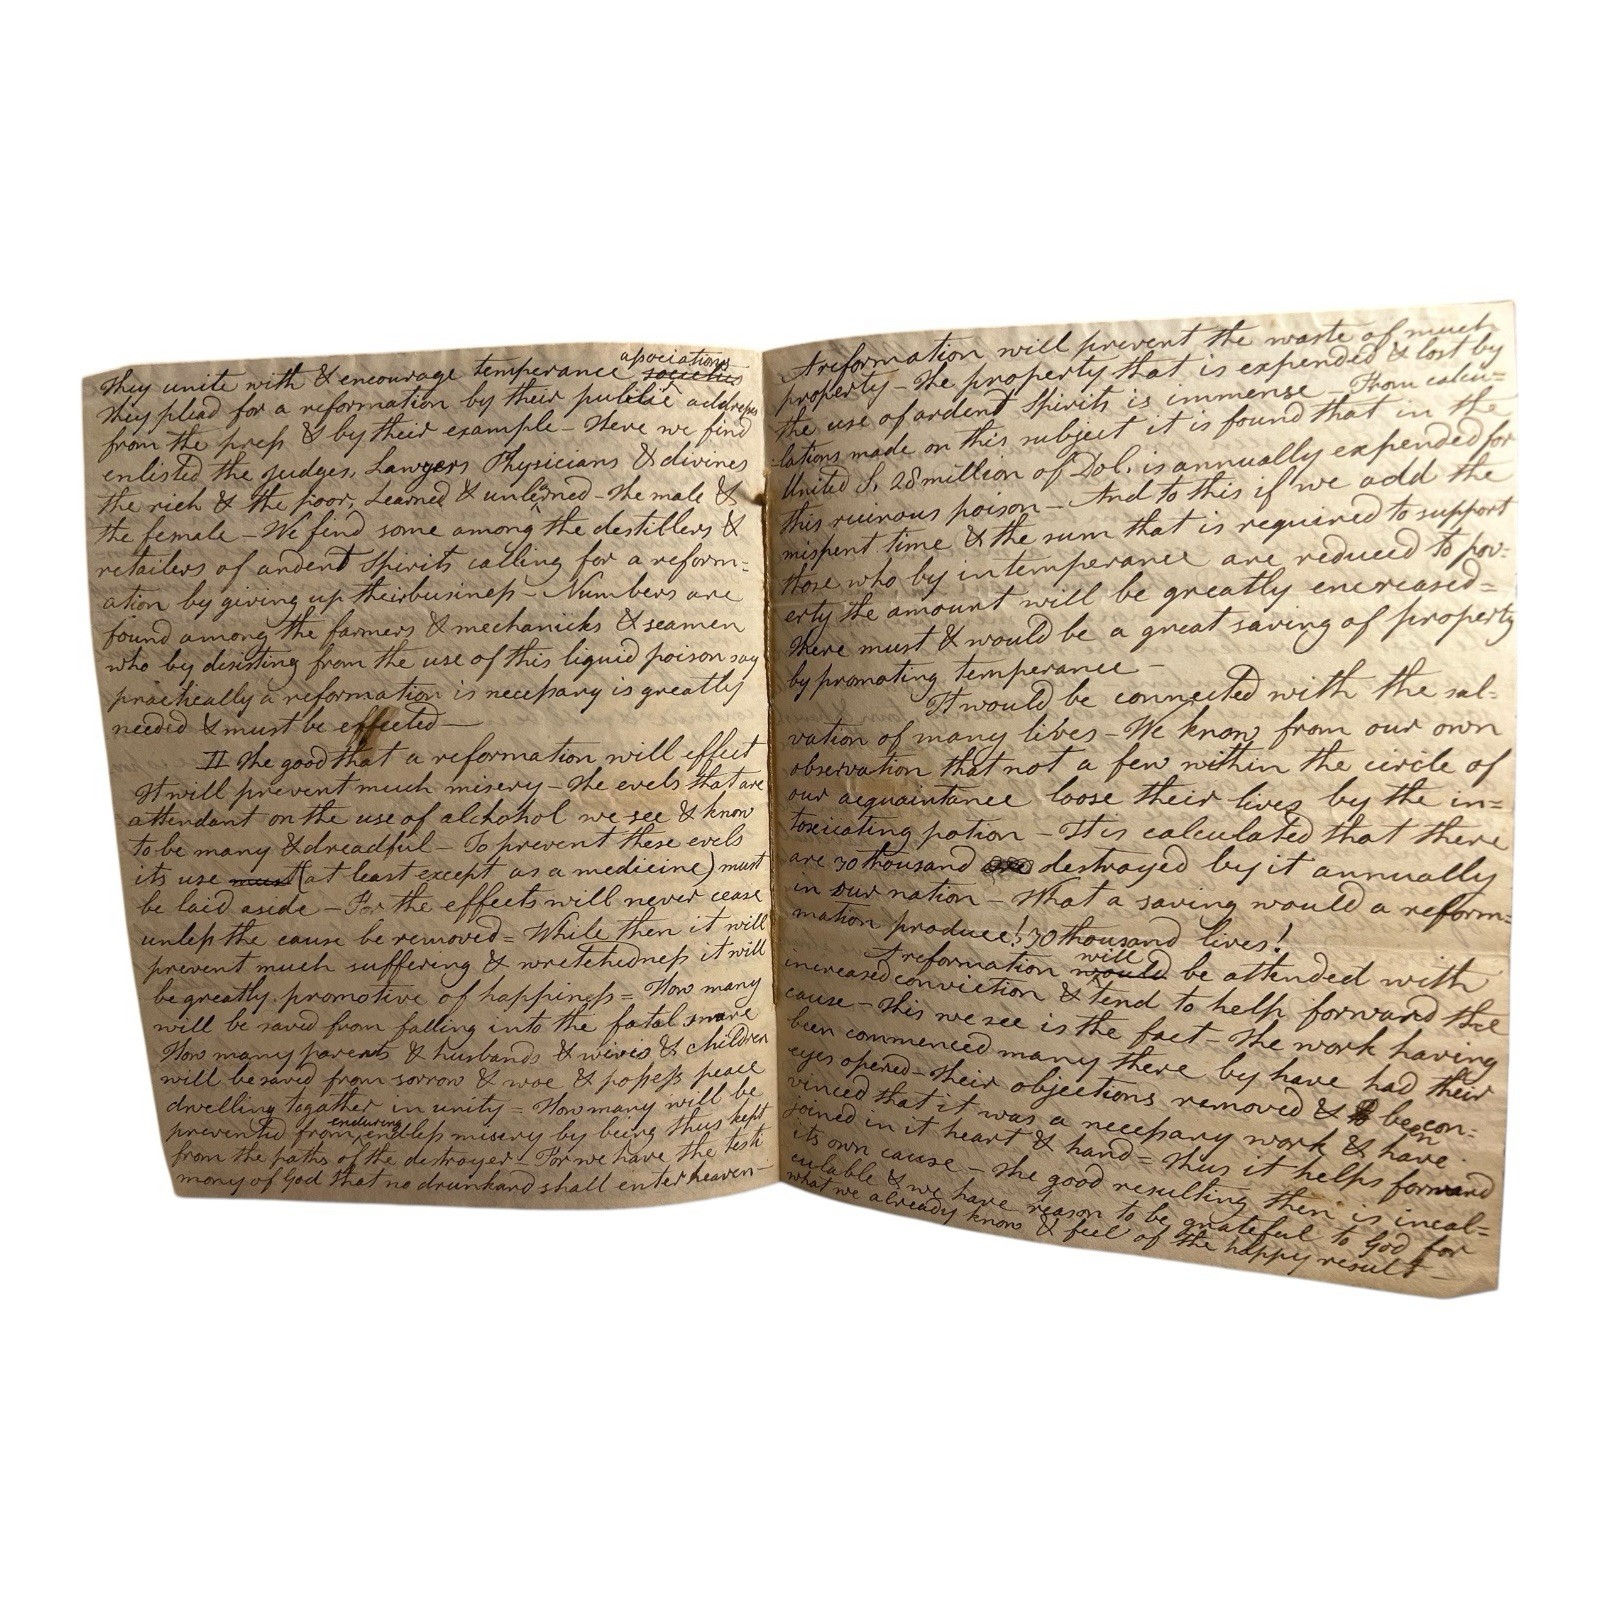 They unite with & encourage temperance associations societies
They plead for a reformation by their public addresses
from the press & by their example – Here we find
enlisted the judges, Lawyers Physicians & divines
the rich & the poor, Learned & unlerned – The male &
the female – We find some among the destillers &
retailers of ardent Spirits calling for a reform=
ation by giving up their business – Numbers are
found among the farmers & mechanicks & seamen
who by desisting from the use of this liquid poison say
practically a reformation is necessary is greatly
needed & must be effected –
II The good that a reformation will effect
It will prevent much misery – The evels that are
attendant on the use of alchohol we see & know
to be many & dreadful – To prevent these evels
its use must (at least except as a medicine) must
be laid aside – For the effects will never cease
unless the cause be removed = While then it will
prevent much suffering & wretchedness it will
be greatly promotive of happiness = How many
will be saved from falling into the fatal snare
How many parents & husbands & wives & children
will be saved from sorrow & woe & possess peace
dwelling togather in unity = How many will be
prevented from enduring endless misery by being thus kept
from the paths of the destroyer – For we have the testi
mony of God that no drunkard shall enter heaven –
A reformation will prevent the waste of much
property – The property that is expended & lost by
the use of ardent Spirits is immense – From calcu=
lations made on this subject it is found that in the
United S. 28 million of Dol. is annually expended for
this ruinous poison – And to this if we add the
mispent time & the sum that is required to support
those who by intemperance are reduced to pov-
erty the amount will be greatly encreased =
There must & would be a great saving of property
by promoting temperance –
It would be connected with the sal-
vation of many lives – We know from our own
observation that not a few within the circle of
our acquaintance loose their lives by the in=
toxicating potion – It is calculated that there
are 30 thousand destroyed by it annually
in our nation – What a saving would a reform=
mation produce! 30 thousand lives!
A reformation would will be attended with
increased conviction & tend to help forward the
cause – This we see is the fact – The work having
been commenced many there by have had their
eyes opened – their objections removed & been con-
vinced that it was a necessary work & have
joined in it heart & hand = Thus it helps forward
its own cause – The good resulting then is incal=
culable & we have reason to be grateful to God for
what we already know & feel of the happy result –